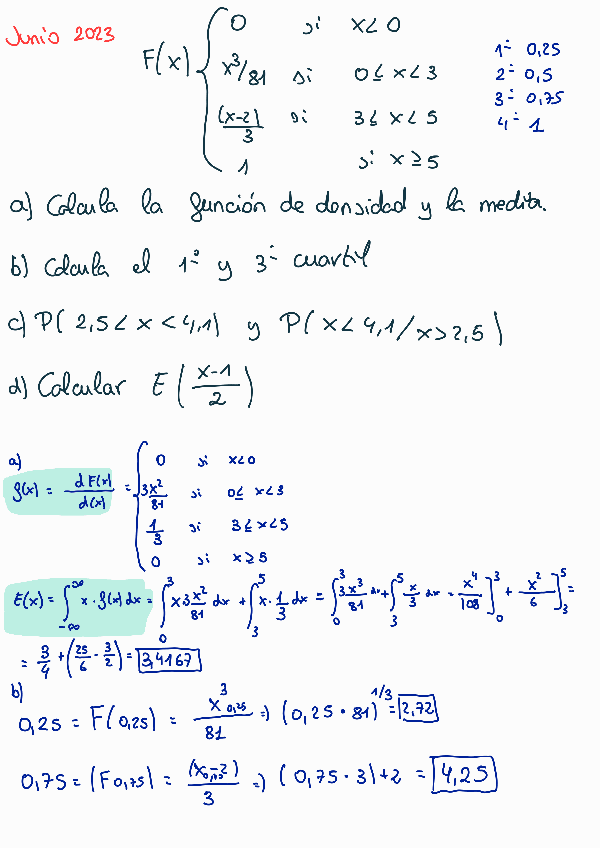 Junio 2023
F(x) { 0 si x<0
x³/81 si 0≤x<3
(x-2)/3 si 3≤x<5
1 si x≥5
1º 0,25
2º 0,5
3º 0,75
4º 1
a) Calcula la función de densidad y la media.
b) Calcula el 1º y 3º cuartil
c) P(2,5<x<4,1) y P(x<4,1/x>2,5)
d) Calcular E((x-1)/2)
a)
f(x) = dF(x)/d(x) = { 0 si x<0
3x²/81 si 0≤x<3
1/3 si 3≤x<5
0 si x≥5
E(x) = ∫_{-∞}^{∞} x·f(x)dx = ∫_0^3 x 3x²/81 dx + ∫_3^5 x·1/3 dx = ∫_0^3 3x³/81 dx + ∫_3^5 x/3 dx = x⁴/108]_0^3 + x²/6]_3^5 =
= 3/4 + (25/6 - 3/2) = 3,4167
b)
0,25 = F(0,25) = x³_{0,25}/81 => (0,25·81)^{1/3} = 2,72
0,75 = (F0,75) = (x_{0,75}-2)/3 => (0,75·3)+2 = 4,25